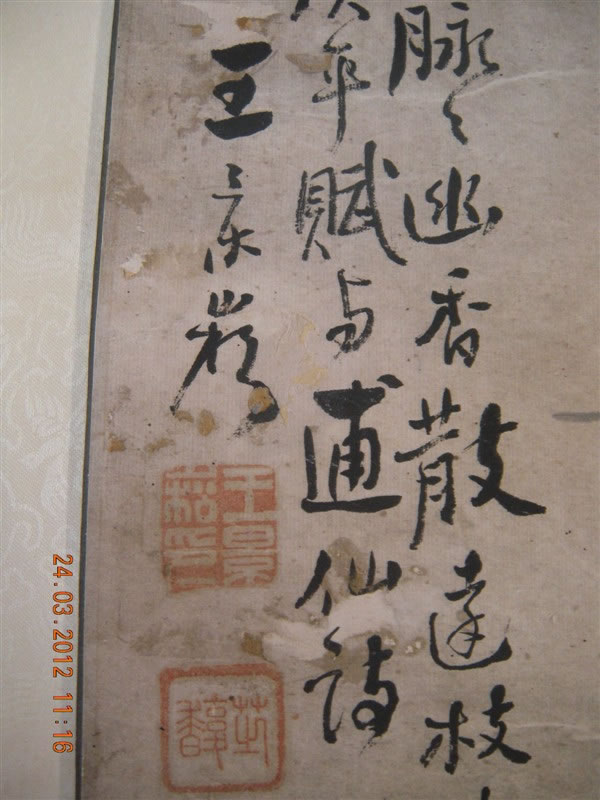 脉〻幽香散遠枝
平賦与逋仙詩
王景
王景印
24.03.2012 11:16